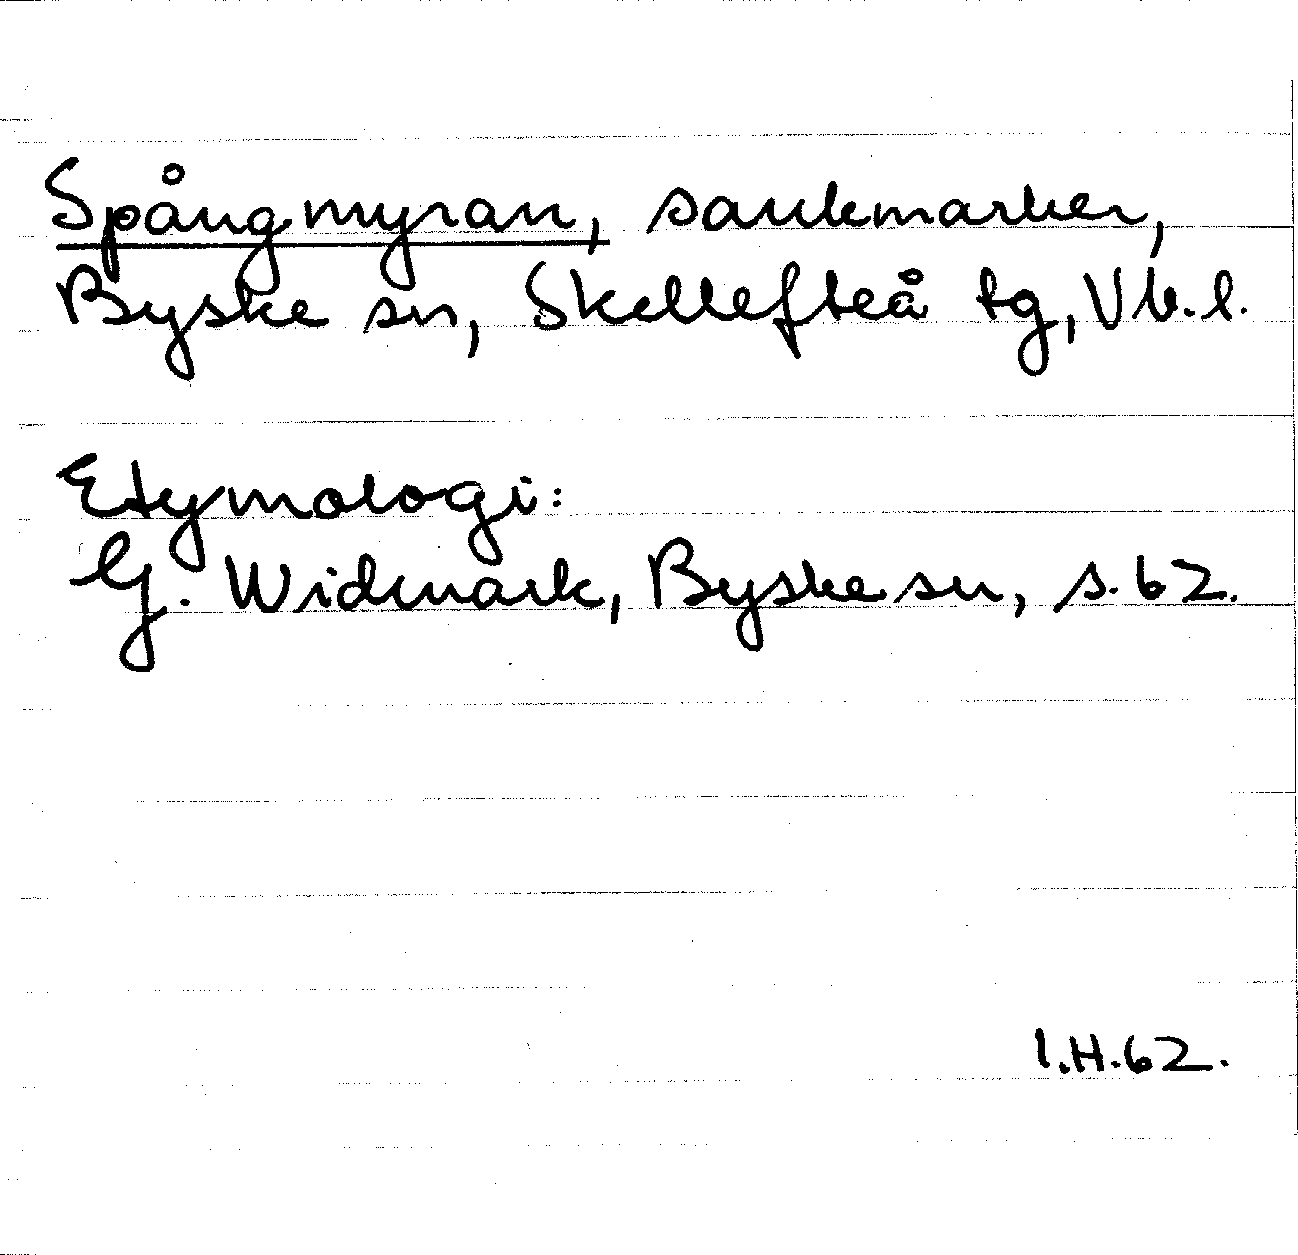 Spångmyran, sankmarker,
Byske sn, Skellefteå tg, Vb.l.
Etymologi:
G. Widmark, Byske sn, s. 62.
I.H.62.